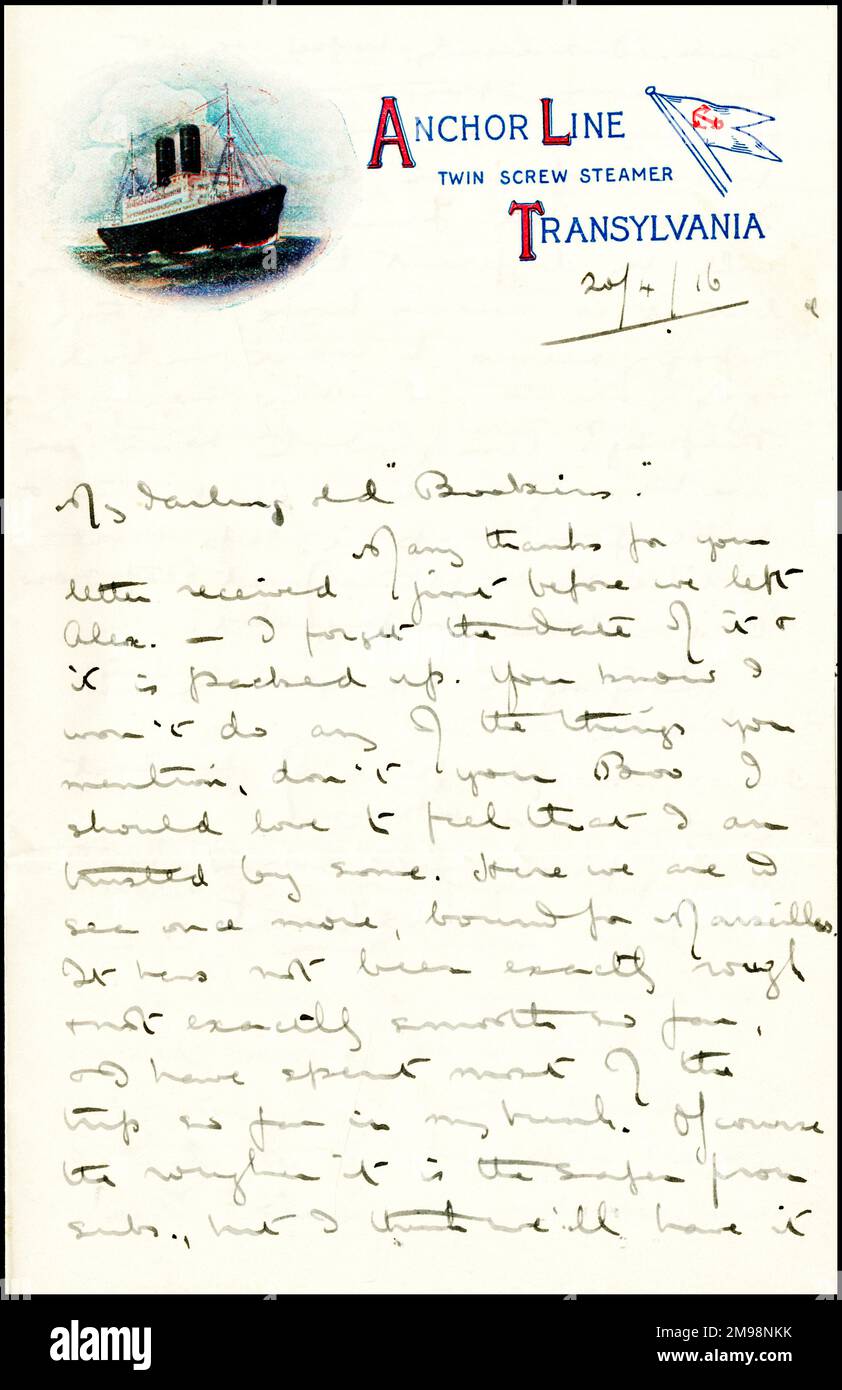 ANCHOR LINE
TWIN SCREW STEAMER
TRANSYLVANIA
20/4/16
My darling old "Bookins."
Many thanks for your
letter received just before we left
Alex. — I forget the date of it &
it is packed up. You know I
won't do any of the things you
mention, don't you Boo I
should love to feel that I am
trusted by some. Here we are at
sea once more, bound for Marseilles.
It has not been exactly rough
& not exactly smooth so far,
& I have spent most of the
trip so far in my bunk. Of course
the rougher it is the safer from
subs., but I think we'll have it
alamy
Image ID: 2M98NKK
www.alamy.com